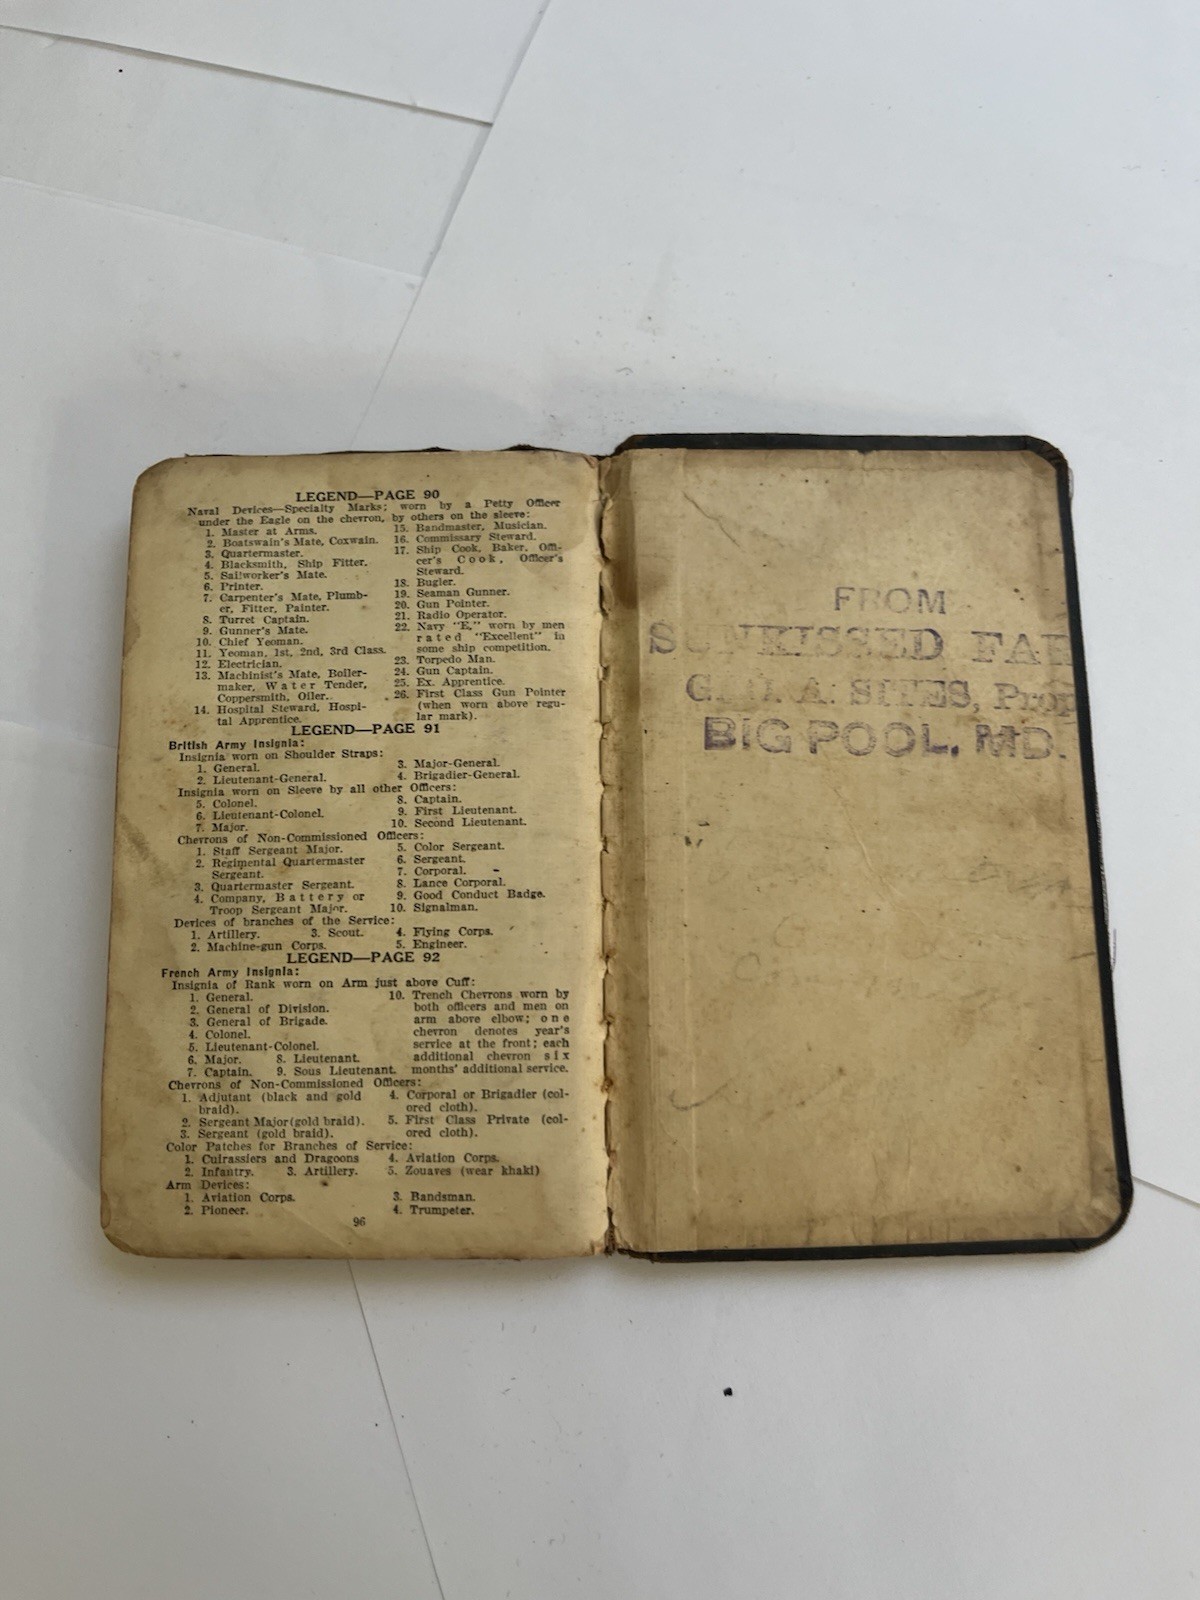 LEGEND—PAGE 90
Naval Devices—Specialty Marks; worn by a Petty Officer
under the Eagle on the chevron, by others on the sleeve:
1. Master at Arms.
2. Boatswain's Mate, Coxwain.
3. Quartermaster.
4. Blacksmith, Ship Fitter.
5. Sailworker's Mate.
6. Printer.
7. Carpenter's Mate, Plumb-
er, Fitter, Painter.
8. Turret Captain.
9. Gunner's Mate.
10. Chief Yeoman.
11. Yeoman, 1st, 2nd, 3rd Class.
12. Electrician.
13. Machinist's Mate, Boiler-
maker, Water Tender,
Coppersmith, Oiler.
14. Hospital Steward, Hospi-
tal Apprentice.
15. Bandmaster, Musician.
16. Commissary Steward.
17. Ship Cook, Baker, Offi-
cer's Cook, Officer's
Steward.
18. Bugler.
19. Seaman Gunner.
20. Gun Pointer.
21. Radio Operator.
22. Navy "E," worn by men
rated "Excellent" in
some ship competition.
23. Torpedo Man.
24. Gun Captain.
25. Ex. Apprentice.
26. First Class Gun Pointer
(when worn above regu-
lar mark).
LEGEND—PAGE 91
British Army Insignia:
Insignia worn on Shoulder Straps:
1. General.
2. Lieutenant-General.
3. Major-General.
4. Brigadier-General.
Insignia worn on Sleeve by all other Officers:
5. Colonel.
6. Lieutenant-Colonel.
7. Major.
8. Captain.
9. First Lieutenant.
10. Second Lieutenant.
Chevrons of Non-Commissioned Officers:
1. Staff Sergeant Major.
2. Regimental Quartermaster
Sergeant.
3. Quartermaster Sergeant.
4. Company, Battery or
Troop Sergeant Major.
5. Color Sergeant.
6. Sergeant.
7. Corporal.
8. Lance Corporal.
9. Good Conduct Badge.
10. Signalman.
Devices of branches of the Service:
1. Artillery. 3. Scout. 4. Flying Corps.
2. Machine-gun Corps. 5. Engineer.
LEGEND—PAGE 92
French Army Insignia:
Insignia of Rank worn on Arm just above Cuff:
1. General.
2. General of Division.
3. General of Brigade.
4. Colonel.
5. Lieutenant-Colonel.
6. Major. 8. Lieutenant.
7. Captain. 9. Sous Lieutenant.
10. Trench Chevrons worn by
both officers and men on
arm above elbow; one
chevron denotes year's
service at the front; each
additional chevron six
months' additional service.
Chevrons of Non-Commissioned Officers:
1. Adjutant (black and gold
braid).
2. Sergeant Major (gold braid).
3. Sergeant (gold braid).
4. Corporal or Brigadier (col-
ored cloth).
5. First Class Private (col-
ored cloth).
Color Patches for Branches of Service:
1. Cuirassiers and Dragoons 4. Aviation Corps.
2. Infantry. 3. Artillery. 5. Zouaves (wear khaki)
Arm Devices:
1. Aviation Corps. 3. Bandsman.
2. Pioneer. 4. Trumpeter.
96
FROM
SUNKISSED FAR
SITES, Prop
BIG POOL, MD.